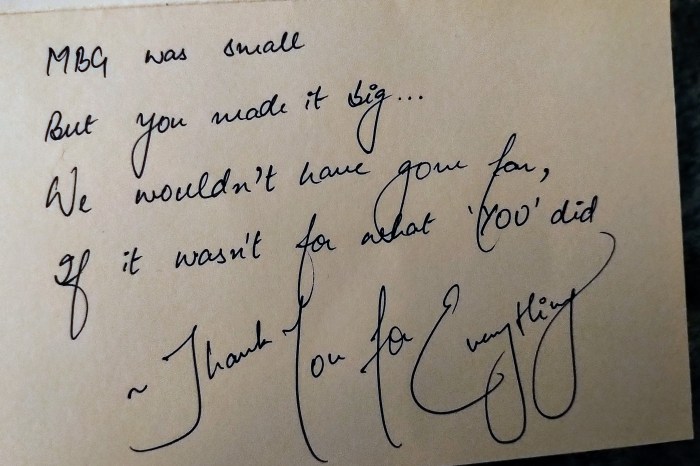 MBG was small
But you made it big...
We wouldn't have gone far,
If it wasn't for what 'YOU' did
~ Thank You for Everything